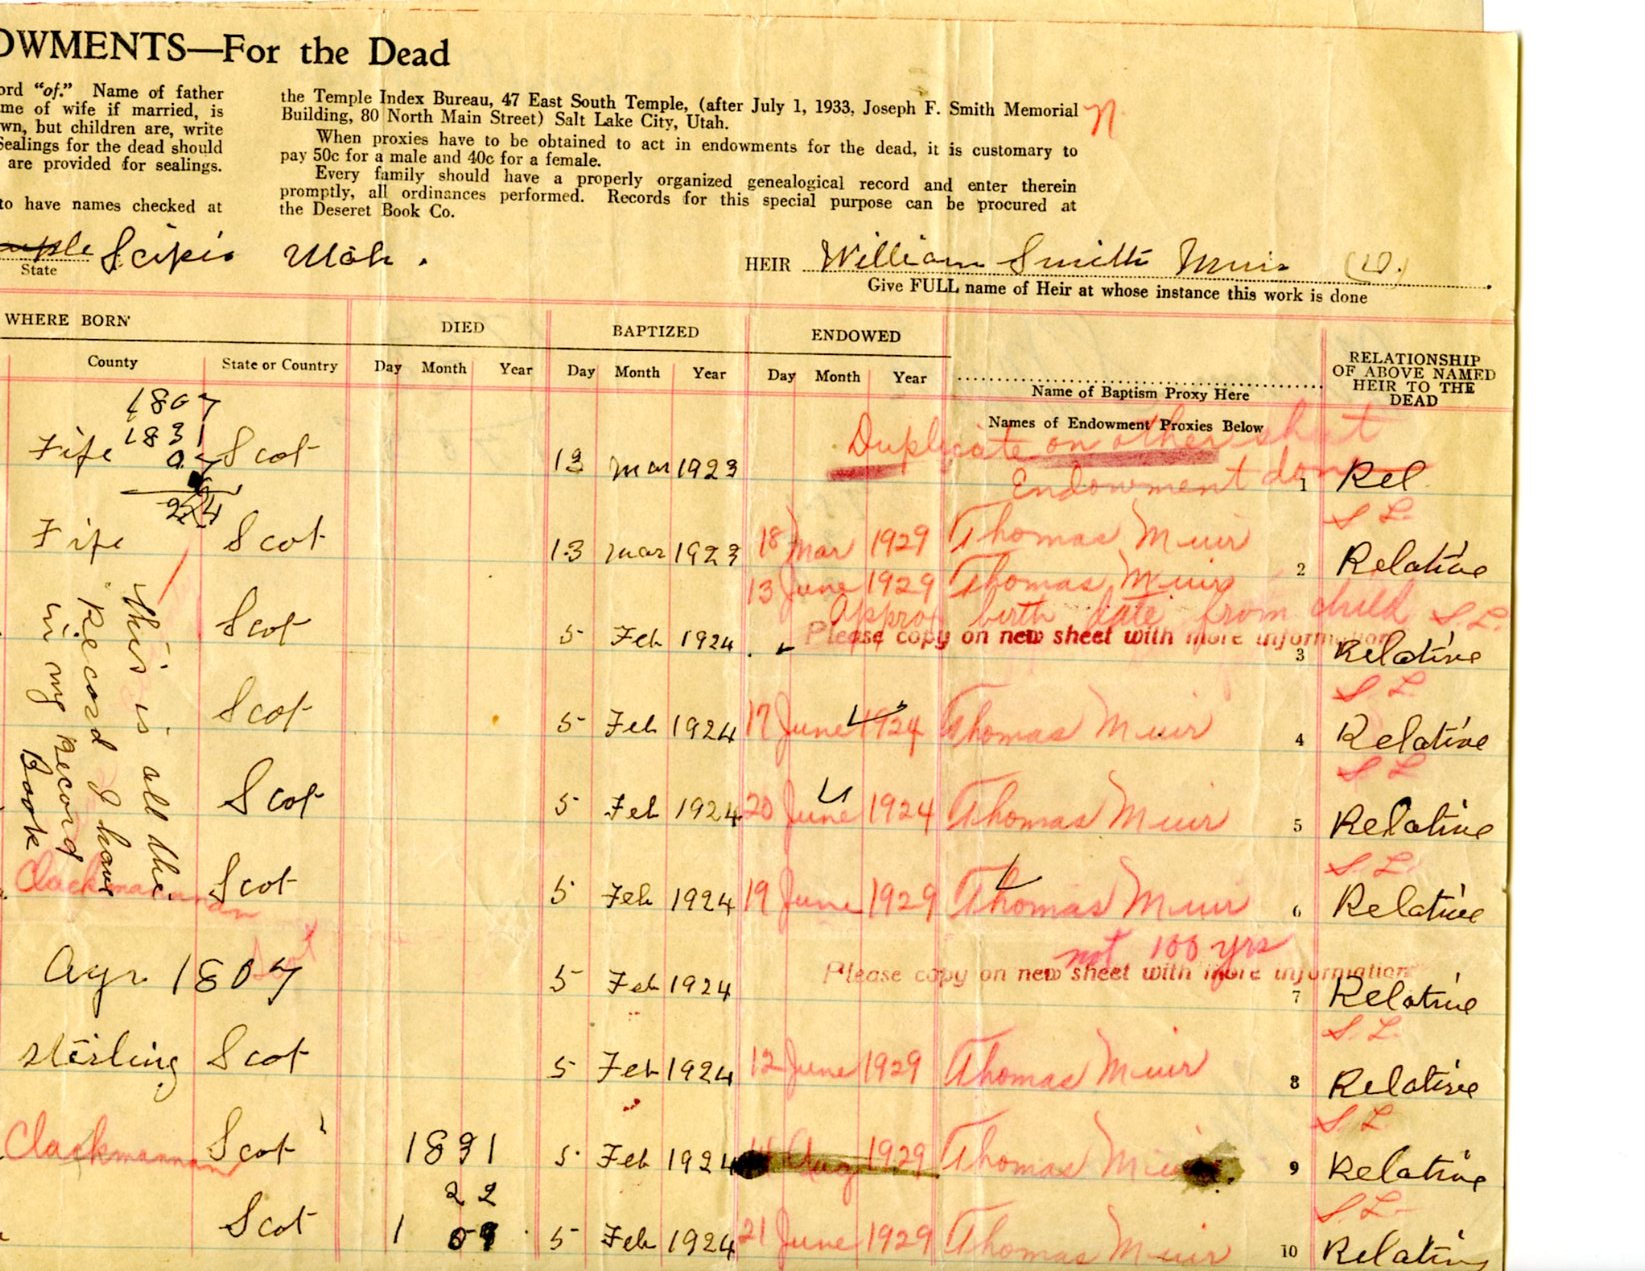 OWMENTS—For the Dead
ord "of." Name of father
me of wife if married, is
wn, but children are, write
Sealings for the dead should
are provided for sealings.
to have names checked at
the Temple Index Bureau, 47 East South Temple, (after July 1, 1933, Joseph F. Smith Memorial
Building, 80 North Main Street) Salt Lake City, Utah.
When proxies have to be obtained to act in endowments for the dead, it is customary to
pay 50c for a male and 40c for a female.
Every family should have a properly organized genealogical record and enter therein
promptly, all ordinances performed. Records for this special purpose can be procured at
the Deseret Book Co.
n
Scipio Utah.
State
HEIR William Smith Muir (D.)
Give FULL name of Heir at whose instance this work is done
WHERE BORN DIED BAPTIZED ENDOWED
County State or Country Day Month Year Day Month Year Day Month Year
Name of Baptism Proxy Here
Names of Endowment Proxies Below
RELATIONSHIP
OF ABOVE NAMED
HEIR TO THE
DEAD
1807
1831
07
224
Duplicate on other sheet
Fife Scot 13 Mar 1923 Endowment done 1 Rel
S L.
Fife Scot 13 Mar 1923 18 Mar 1929 Thomas Muir 2 Relative
13 June 1929 Thomas Muir
Approx birth date from child S.L.
Scot 5 Feb 1924 Please copy on new sheet with more information 3 Relative
S. L.
Scot 5 Feb 1924 17 June 1924 Thomas Muir 4 Relative
S L
Scot 5 Feb 1924 20 June 1924 Thomas Muir 5 Relative
S. L.
Clackmannan Scot 5 Feb 1924 19 June 1929 Thomas Muir 6 Relative
This is all the
Record I have
in my Record
Book
Scot
not 100 yrs
Ayr 1807 5 Feb 1924 Please copy on new sheet with more information 7 Relative
S. L.
Sterling Scot 5 Feb 1924 12 June 1929 Thomas Muir 8 Relative
S. L.
Clackmannan Scot 1891 5 Feb 1924 Aug 1929 Thomas Muir 9 Relative
22
S. L.
Scot 1 09 5 Feb 1924 21 June 1929 Thomas Muir 10 Relative